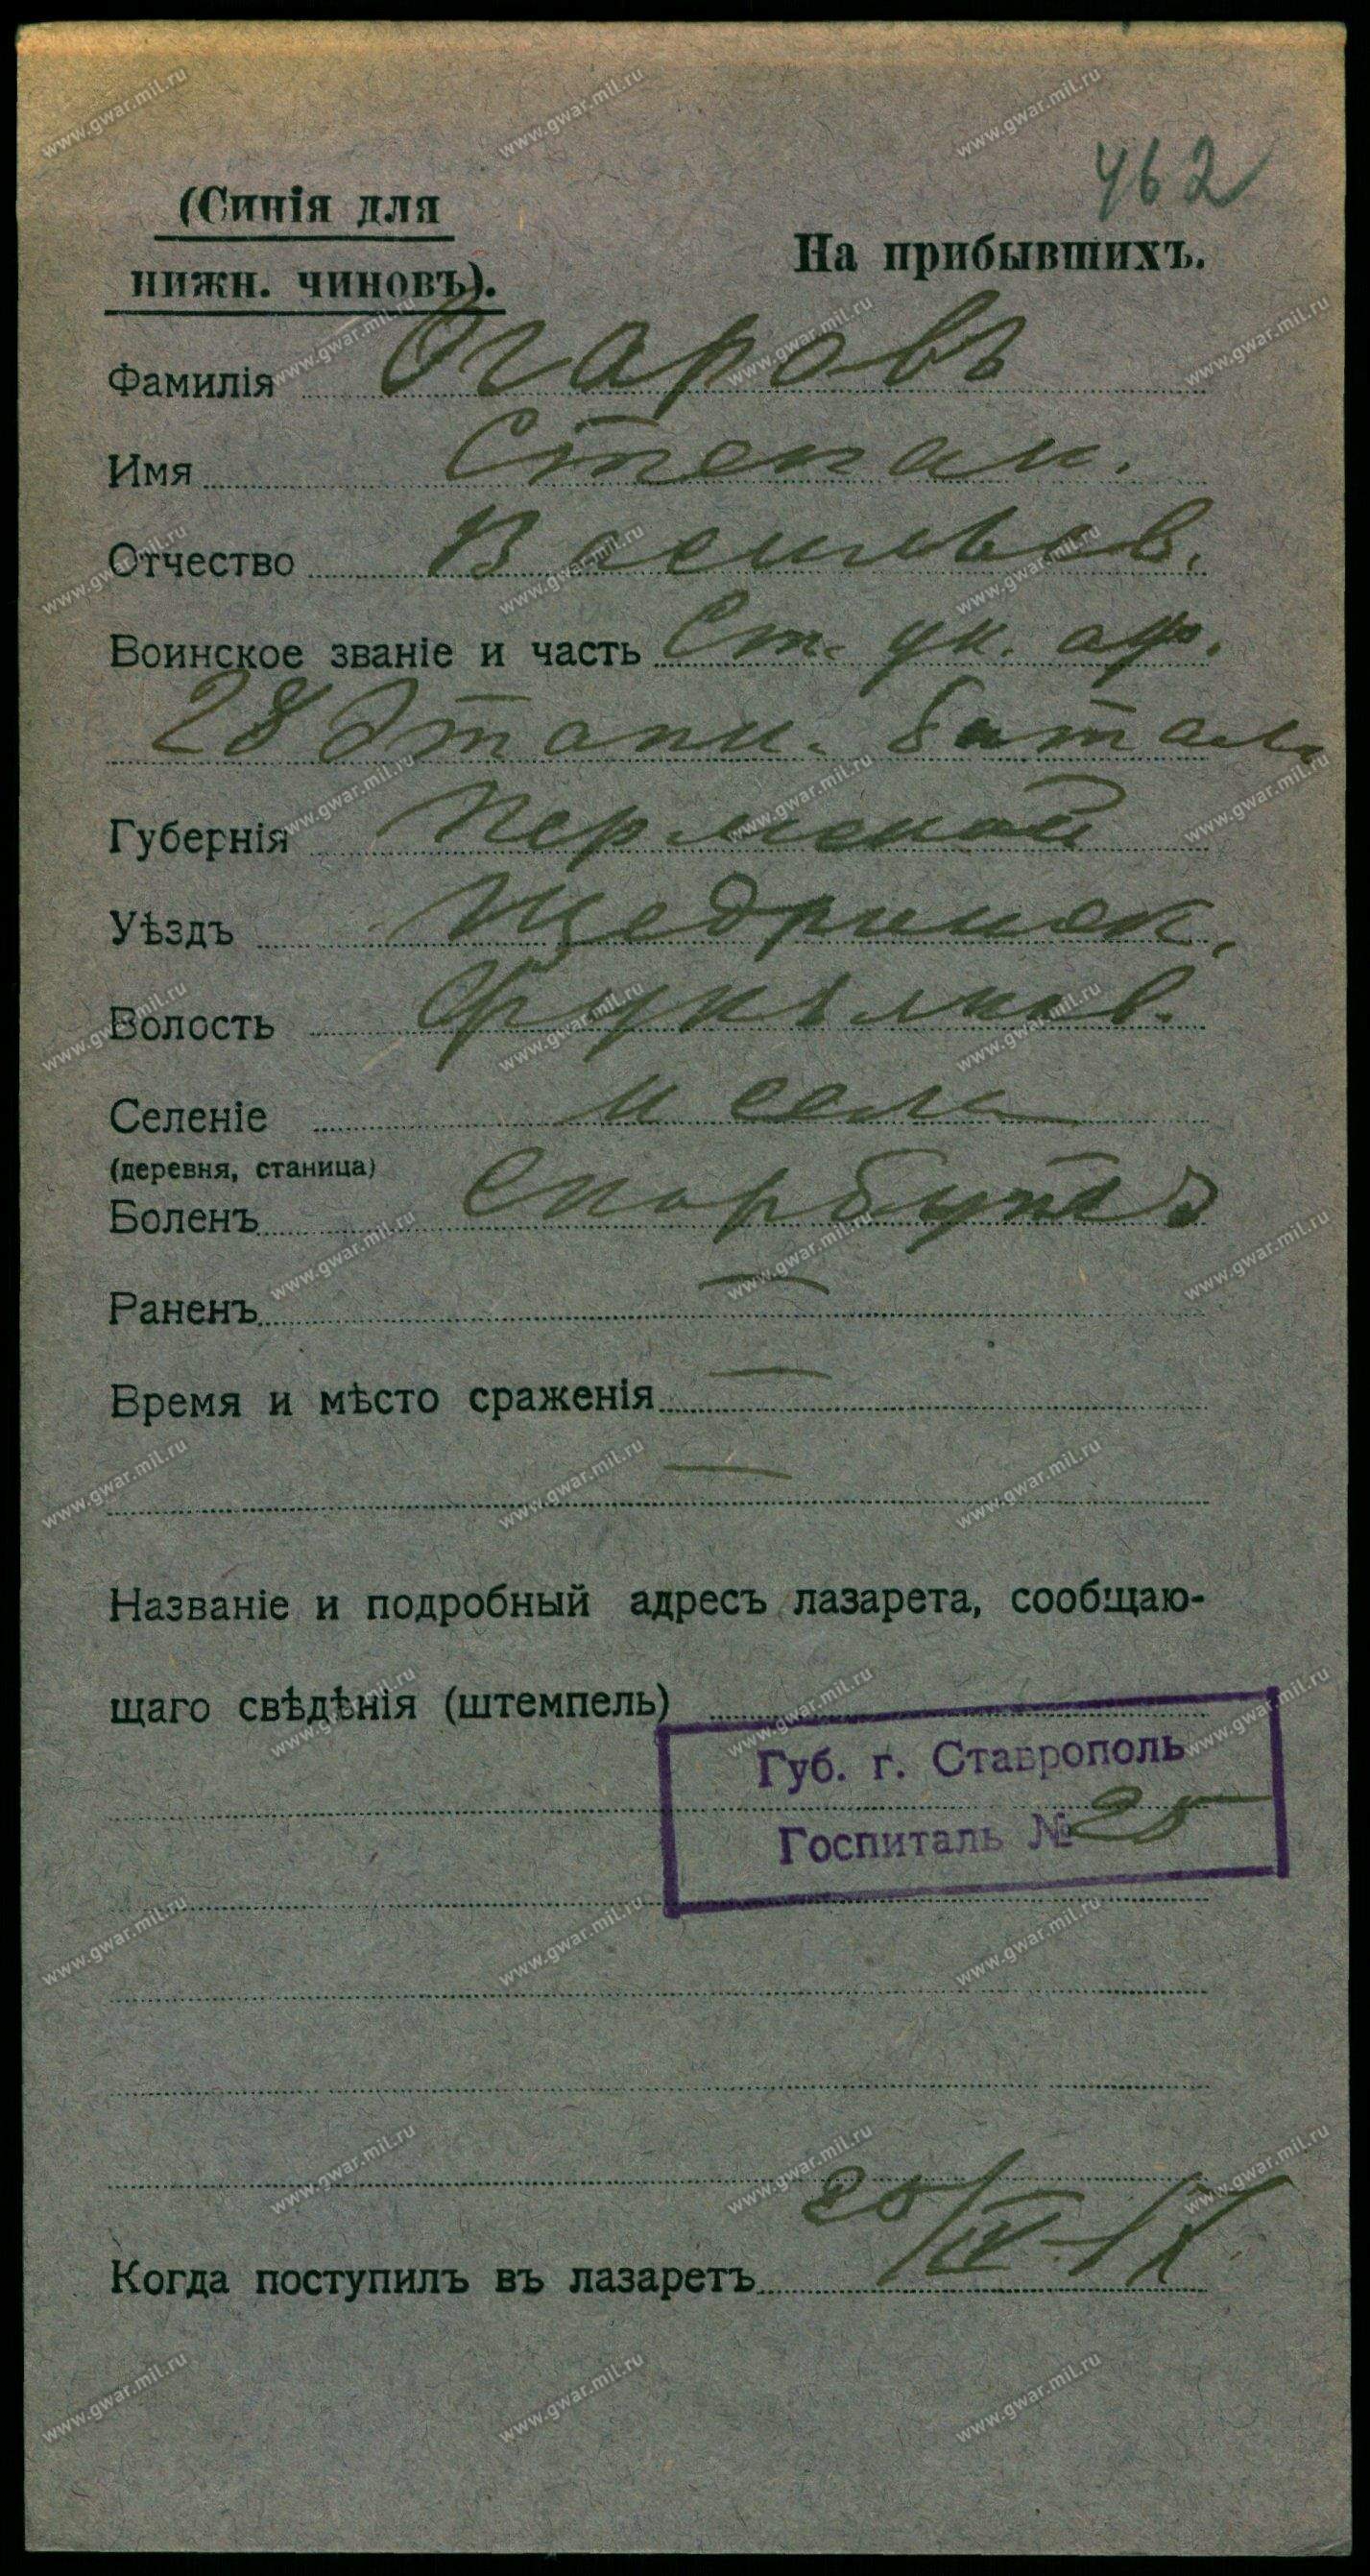 462
(Синія для
нижн. чиновъ).
На прибывшихъ.
Фамилія Огаровъ
Имя Степан.
Отчество Васильев.
Воинское званіе и часть Ст. ун. оф.
28 Этапн. батал
Губернія Пермской
Уѣздъ Щедринск.
Волость
Селеніе и село
(деревня, станица)
Боленъ Скорбутъ
Раненъ —
Время и мѣсто сраженія —
—
Названіе и подробный адресъ лазарета, сообщаю-
щаго свѣдѣнія (штемпель)
Губ. г. Ставрополь
Госпиталь № 25
Когда поступилъ въ лазаретъ
www.gwar.mil.ru